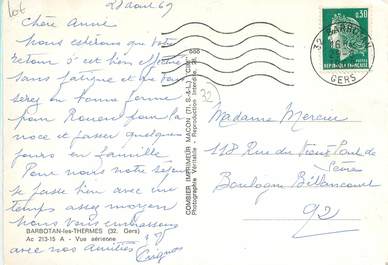 Lot
28 août 69
Chère Anne
Nous espérons que votre
retour s'est bien effectué
sans fatigue et que vous
serez en bonne forme
pour Rouen pour la
noce et passer quelques
jours en famille.
Pour nous notre séjour
se passe bien avec une
temps assez moyen
nous vous embrassons
avec nos amitiés
BARBOTAN-les-THERMES (32. Gers)
Ac 213-15 A - Vue aérienne
COMBIER IMPRIMEUR MACON (71.S.-&-L.) "CIM"
Photographie Véritable - Reproduction Interdite
32
0,30
REPUBLIQUE FRANÇAISE
POSTES
32 BARBOTAN
GERS
Madame Mercier
118 Rue du Vieux Pont de
Sèvres
Boulogne Billancourt
92